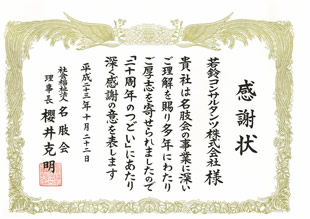 感謝状
若鈴コンサルタンツ株式会社 様
貴社は名肢会の事業に深い
ご理解を賜り多年にわたり
ご厚志を寄せられましたので
「二十周年のつどい」にあたり
深く感謝の意を表します
平成二十三年十月二十二日
社会福祉法人 名肢会
理事長 櫻井克明